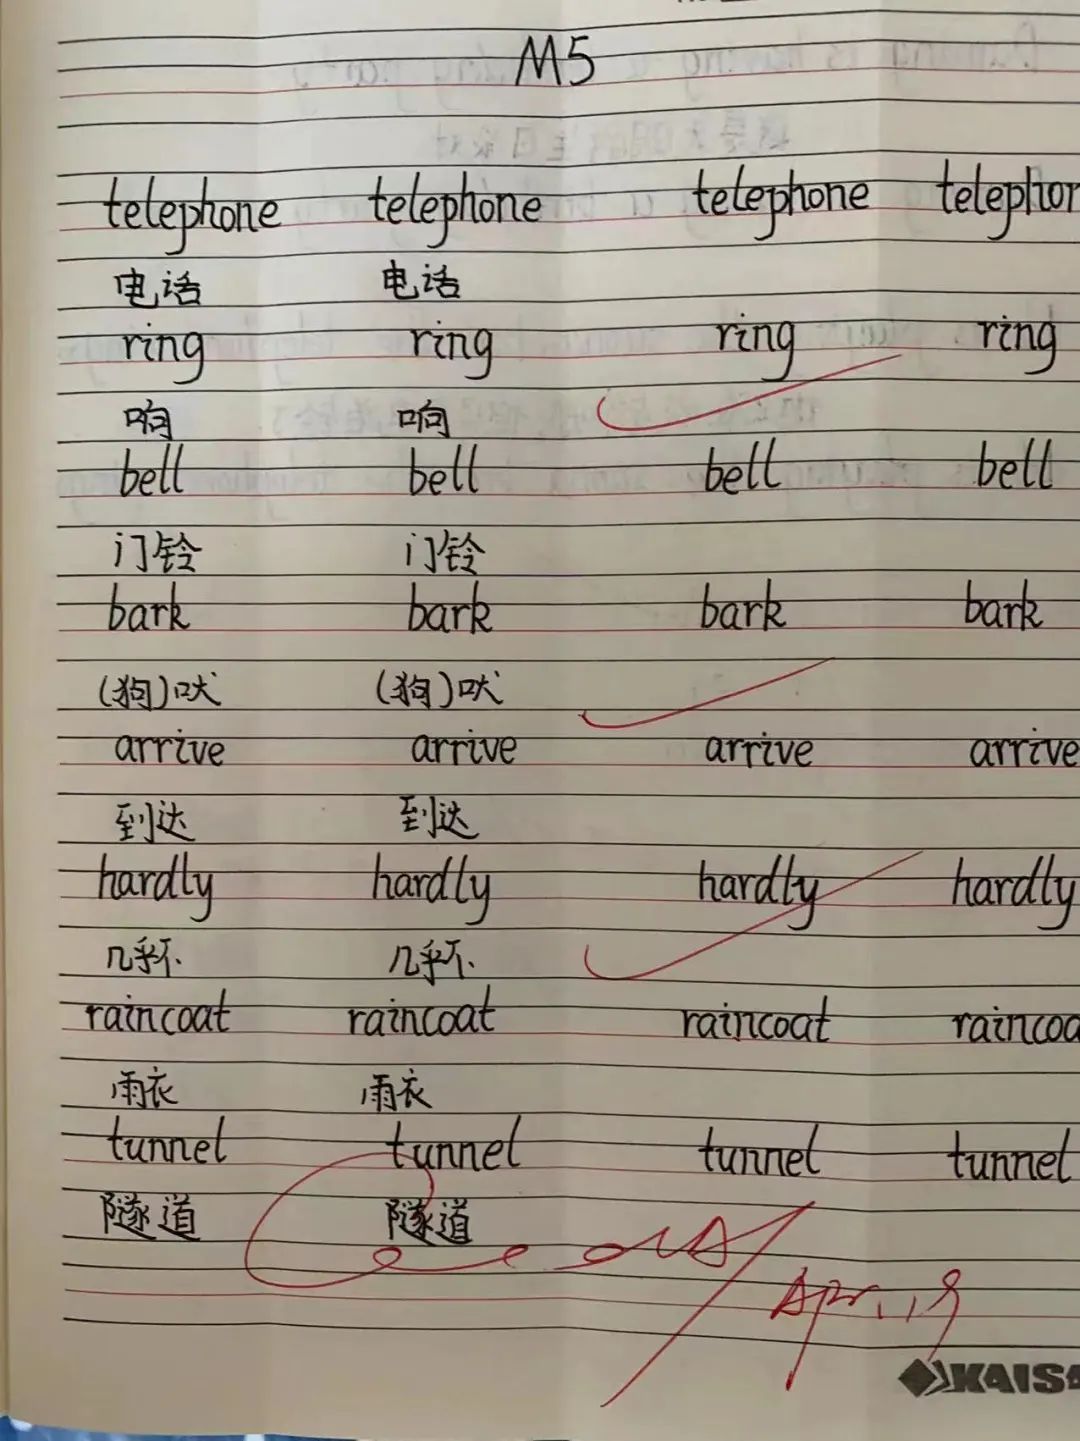 M5
telephone telephone telephone telephon
电话 电话
ring ring ring ring
响 响
bell bell bell bell
门铃 门铃
bark bark bark bark
(狗)吠 (狗)吠
arrive arrive arrive arrive
到达 到达
hardly hardly hardly hardly
几乎不 几乎不
raincoat raincoat raincoat raincoa
雨衣 雨衣
tunnel tunnel tunnel tunnel
隧道 隧道
Apr. 19
KAISA